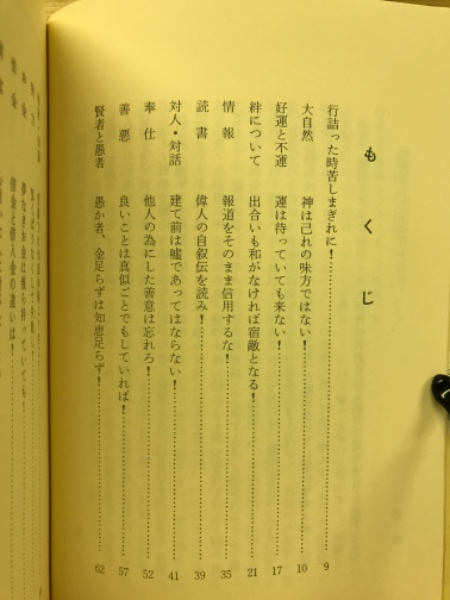 もくじ
行詰った時苦しまぎれに！…………………… 9
大自然　神は己れの味方ではない！…………………… 10
好運と不運　運は待っていても来ない！…………………… 17
絆について　出合いも和がなければ宿敵となる！…………………… 21
情報　報道をそのまま信用するな！…………………… 35
読書　偉人の自叙伝を読み！…………………… 39
対人・対話　建て前は嘘であってはならない！…………………… 41
奉仕　他人の為にした善意は忘れろ！…………………… 52
善悪　良いことは真似ごとでもしていれば！…………………… 57
賢者と愚者　愚か者、金足らずは知恵足らず！…………………… 62
お金　夢なきお金は幾ら持っていても！
借金　借金と借入金の違いは！